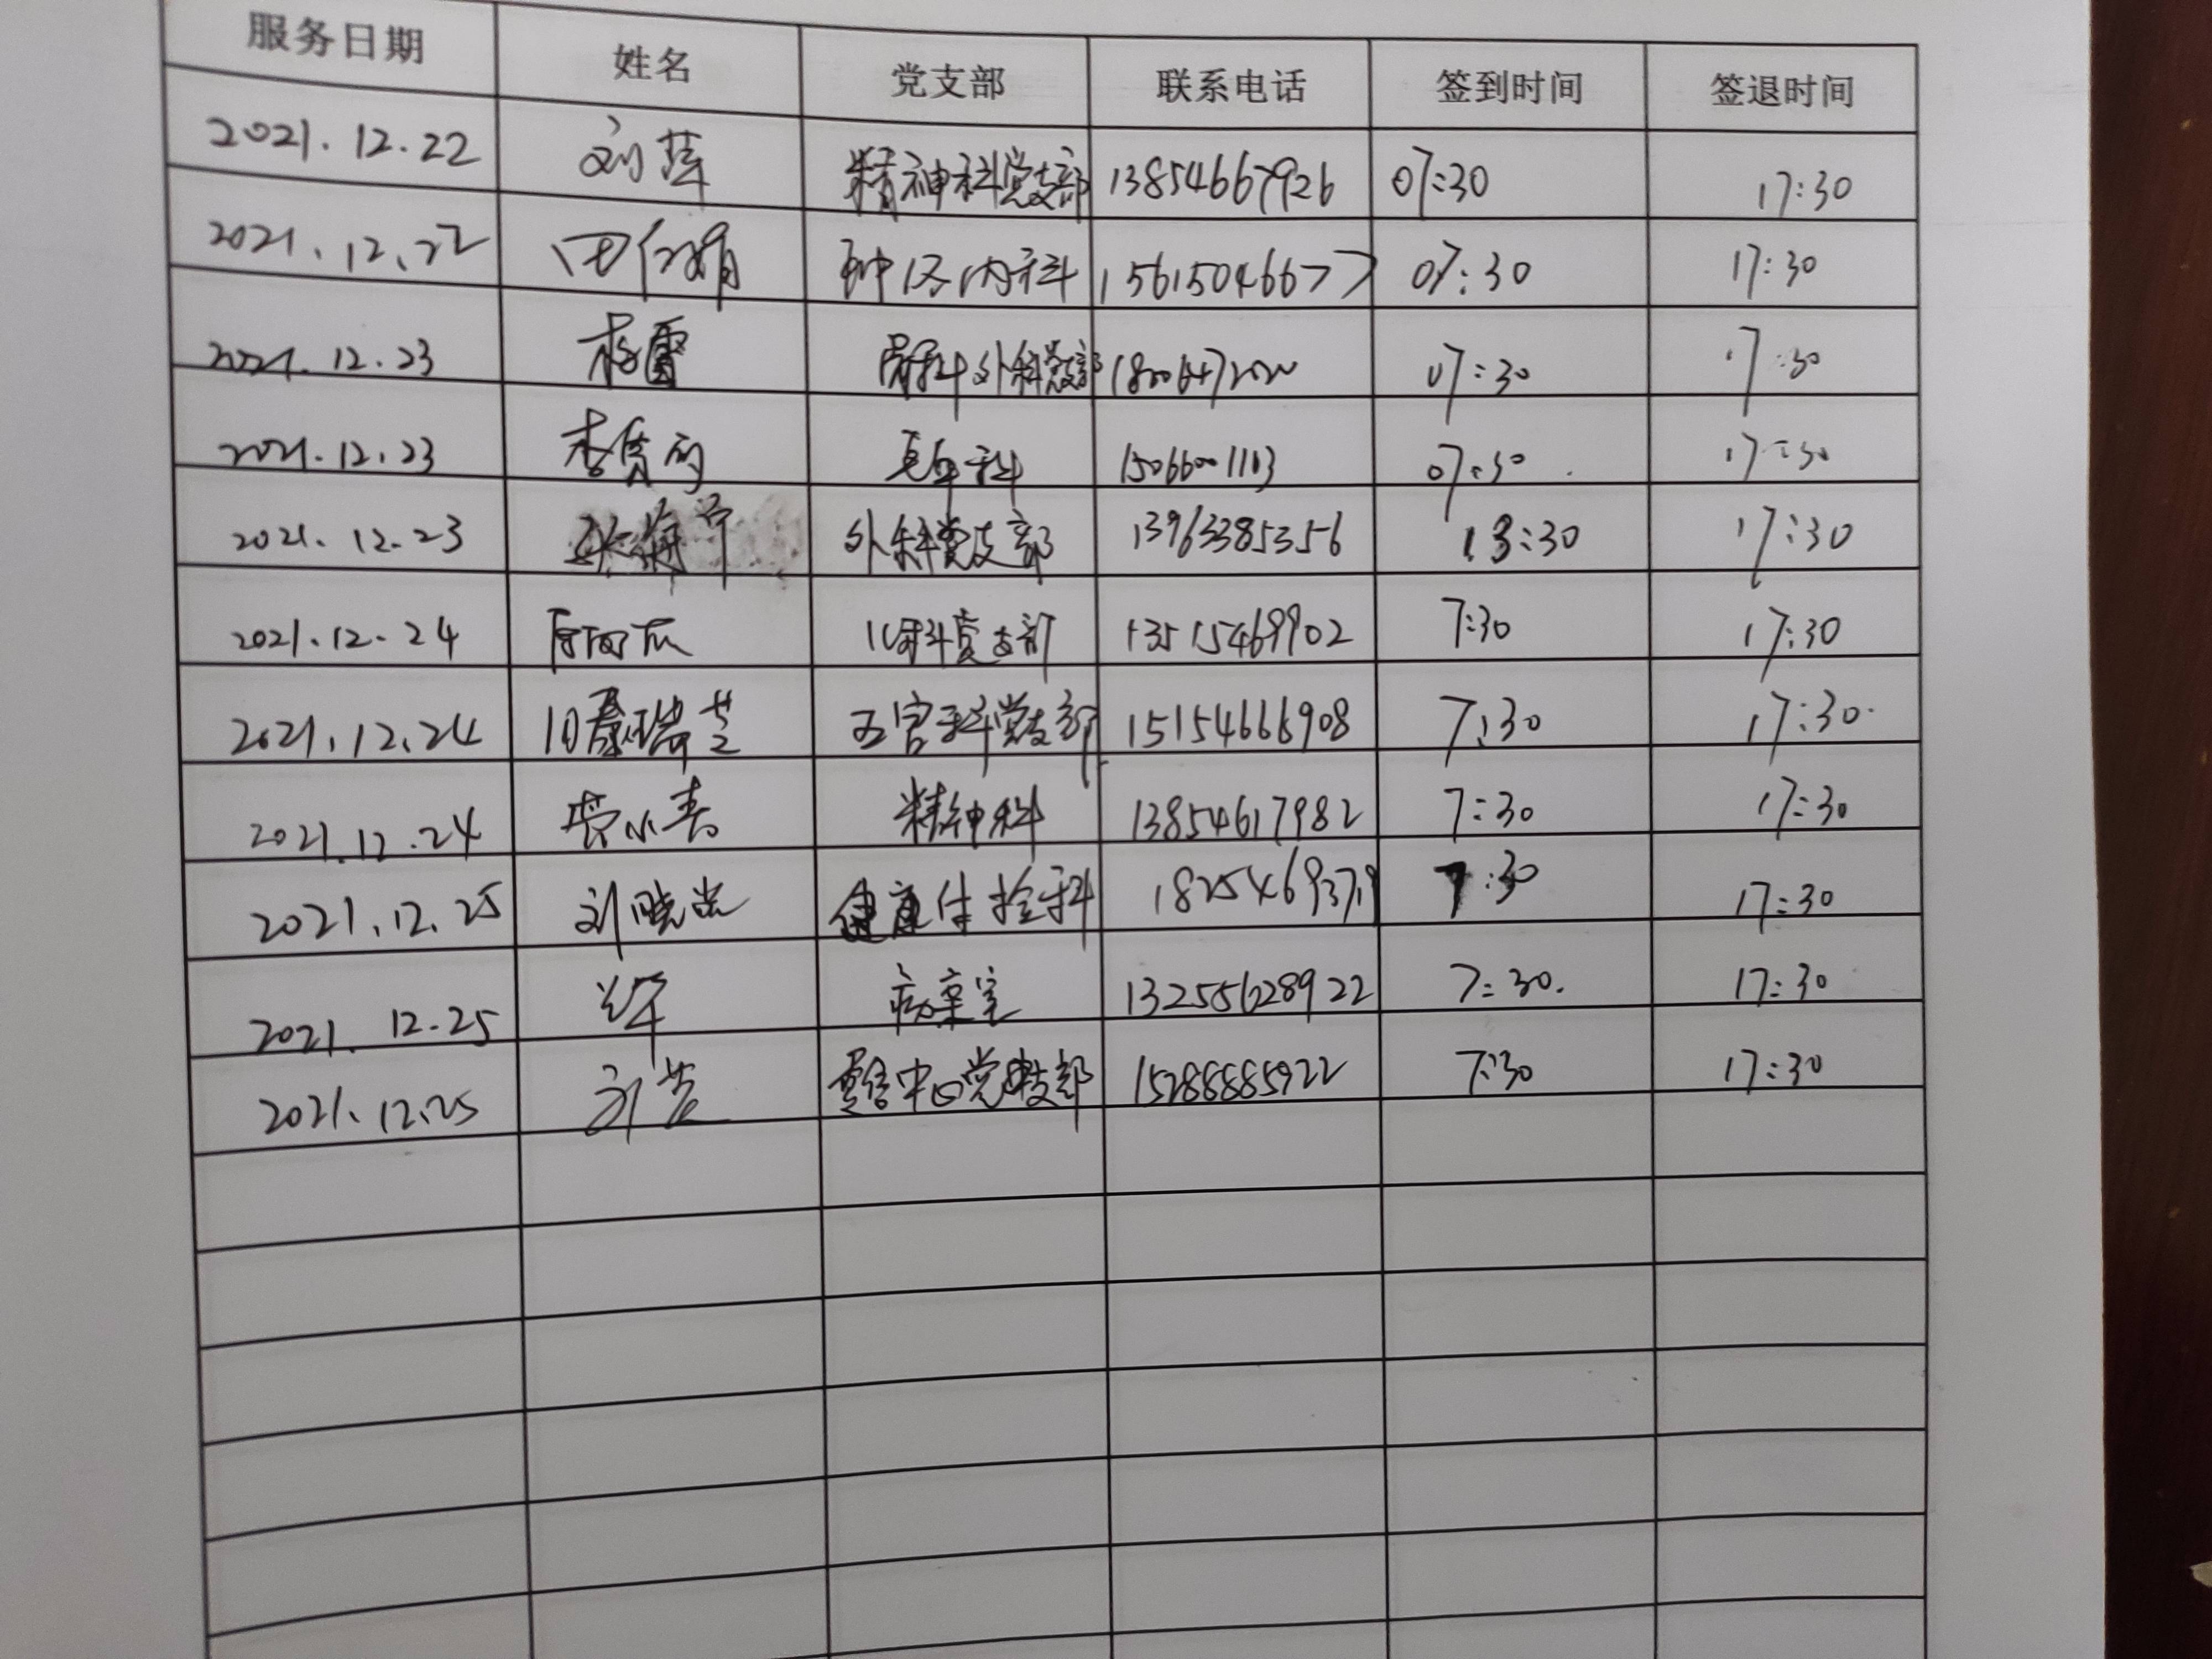 服务日期 姓名 党支部 联系电话 签到时间 签退时间
2021.12.22 刘萍 精神科党支部 13854667926 07:30 17:30
2021.12.22 肿瘤内科 15615046677 07:30 17:30
2021.12.23 外科党支部 07:30 17:30
2021.12.23 老年科 15066001113 07:30 17:30
2021.12.23 外科党支部 13963385356 13:30 17:30
2021.12.24 儿科党支部 13515469902 7:30 17:30
2021.12.24 瑞芝 五官科党支部 15154666908 7:30 17:30
2021.12.24 精神科 13854617982 7:30 17:30
2021.12.25 刘晓 健康体检科 18254693719 7:30 17:30
2021.12.25 病案室 13255628922 7:30. 17:30
2021.12.25 刘芳 中心党支部 15288885922 7:30 17:30